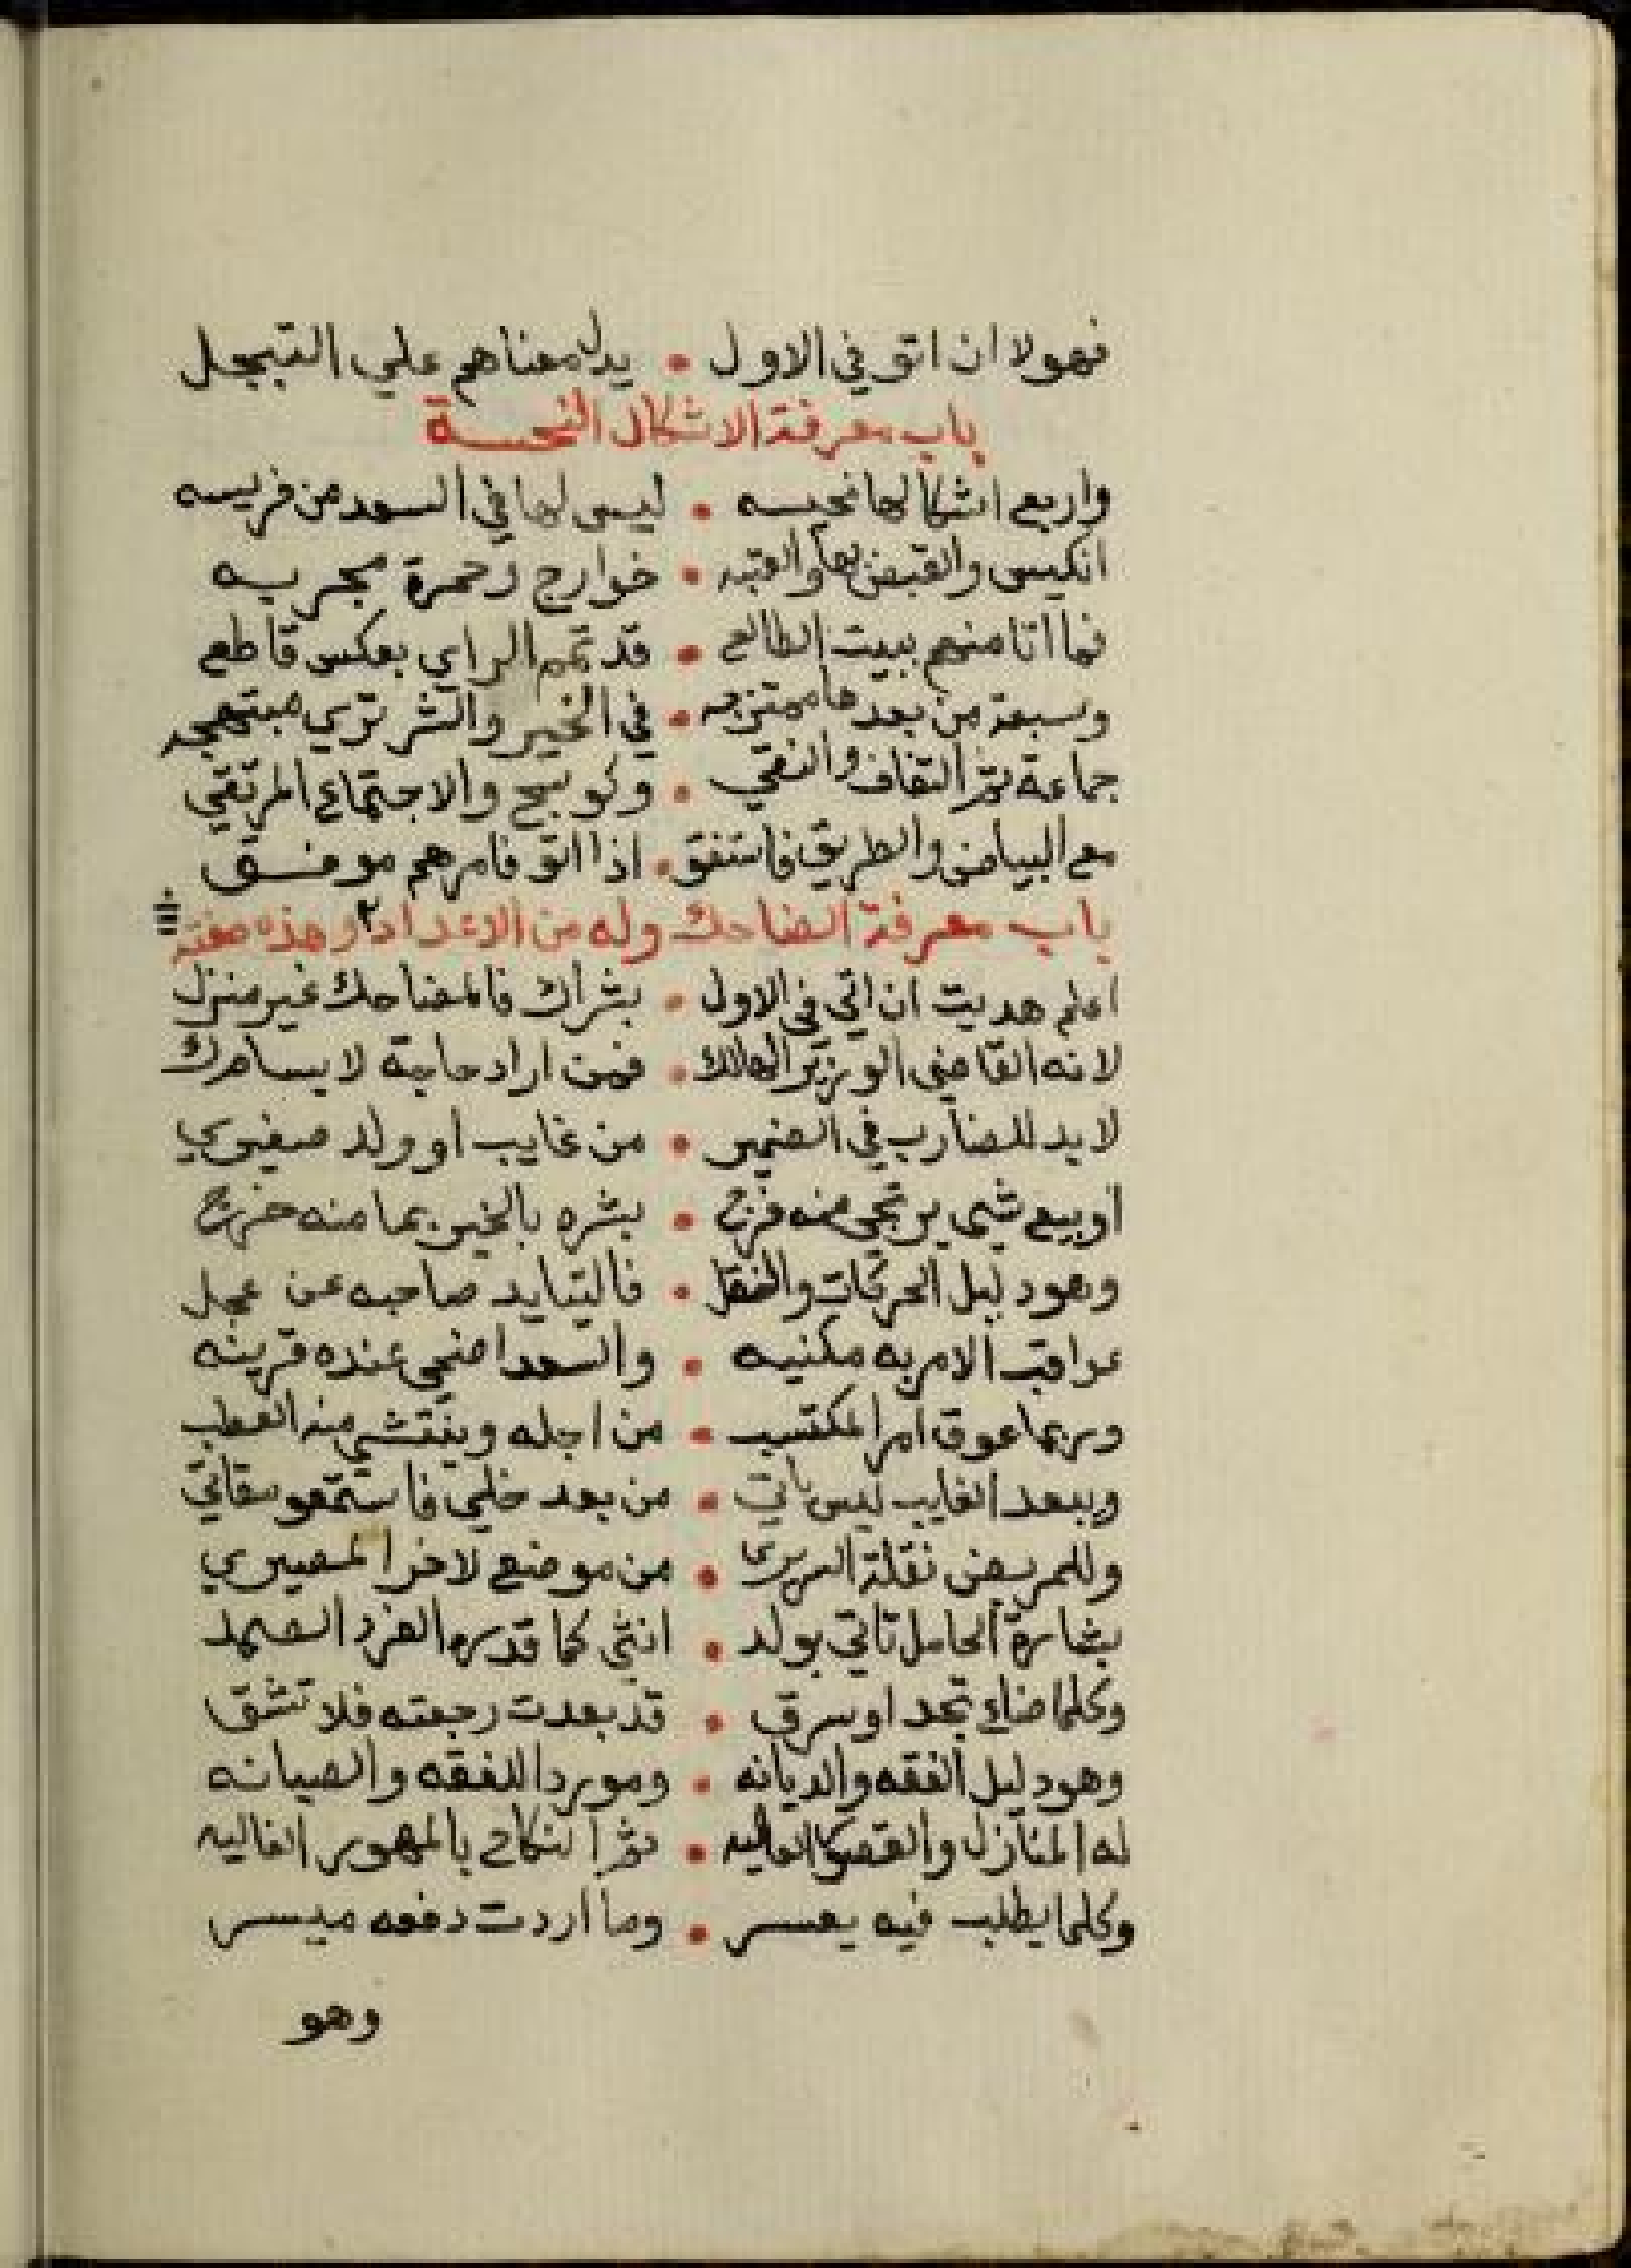 فهولا ان اتو في الاول • يدل معناهم علي التبجل
باب معرفة الاشكال النحسة
واربع اشكالها نحيسه • ليس لها في السعد من فريسه
انكيس والقبض بها والعتبه • خوارج وحمرة مجربه
فما اتا منهم ببيت الطالع • قد تمم الراي بعكس قاطع
وسبعة من بعدها ممتزجه • في الخير والشر تري مبتهجه
جماعة ثم الثقاف والنقي • وكوسج والاجتماع المرتقي
مع البياض والطريق فاستفق • اذا اتو فامرهم موفق
باب معرفة الضاحك وله من الاعداد ٢ وهذه صفته
اعلم هديت ان اتي في الاول • بشراك فالضاحك غير منزل
لانه القاضي الوزير المالك • فمن اراد حاجة
لابد للضارب في الضمير • من غايب او ولد صغيري
او بيع شي يرتجي منه فرج • بشره بالخير بما منه خرج
وهو دليل الحركات والنقل • صاحبه عن عجل
عواقب الامر به مكنيه • والسعد اضحي عنده قرينه
وربما عوق امر المكتسب • من اجله وينتشي منه العطب
وببعد الغايب ليس ياتي • من بعد خلي فاستمعو مقالتي
وللمريض نقلة السرير • من موضع لاخر المصيري
بشارة الحامل تاتي بولد • انثي كما قدره الفرد الصمد
وكلما ضاع تجد او سرق • قد بعدت رجعته فلا تشق
وهو دليل الفقه والديانه • ومورد اللفقه والصيانه
له المنازل والقصور العاليه • ثم النكاح بالمهور الغاليه
وكلما يطلب فيه يعسر • وما اردت دفعه ميسر
وهو